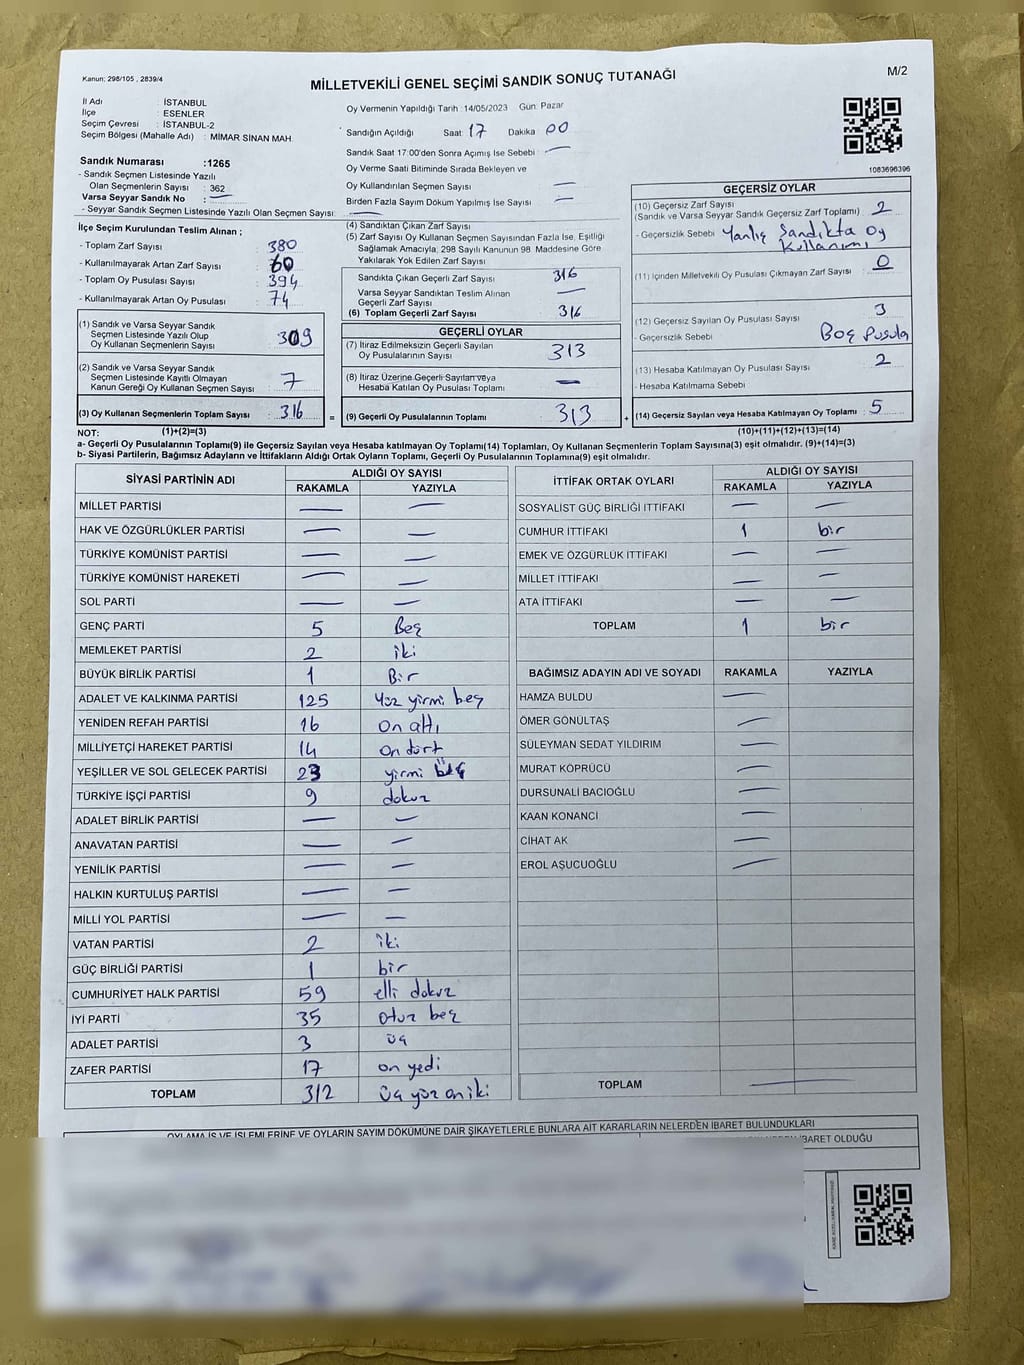 Kanun; 298/105 , 2839/4
MİLLETVEKİLİ GENEL SEÇİMİ SANDIK SONUÇ TUTANAĞI
M/2
İl Adı : İSTANBUL
İlçe : ESENLER
Seçim Çevresi : İSTANBUL-2
Seçim Bölgesi (Mahalle Adı) : MİMAR SİNAN MAH.
Sandık Numarası :1265
- Sandık Seçmen Listesinde Yazılı
Olan Seçmenlerin Sayısı : 362
Varsa Seyyar Sandık No : —
- Seyyar Sandık Seçmen Listesinde Yazılı Olan Seçmen Sayısı: —
Oy Vermenin Yapıldığı Tarih : 14/05/2023 Gün: Pazar
Sandığın Açıldığı Saat: 17 Dakika 00
Sandık Saat 17:00'den Sonra Açımış İse Sebebi —
Oy Verme Saati Bitiminde Sırada Bekleyen ve
Oy Kullandırılan Seçmen Sayısı —
Birden Fazla Sayım Döküm Yapılmış İse Sayısı —
1083696396
İlçe Seçim Kurulundan Teslim Alınan ;
- Toplam Zarf Sayısı : 380
- Kullanılmayarak Artan Zarf Sayısı : 60
- Toplam Oy Pusulası Sayısı : 394
- Kullanılmayarak Artan Oy Pusulası : 74
(1) Sandık ve Varsa Seyyar Sandık
Seçmen Listesinde Yazılı Olup
Oy Kullanan Seçmenlerin Sayısı : 309
(2) Sandık ve Varsa Seyyar Sandık
Seçmen Listesinde Kayıtlı Olmayan
Kanun Gereği Oy Kullanan Seçmen Sayısı : 7
(3) Oy Kullanan Seçmenlerin Toplam Sayısı : 316
(4) Sandıktan Çıkan Zarf Sayısı
(5) Zarf Sayısı Oy Kullanan Seçmen Sayısından Fazla İse, Eşitliği
Sağlamak Amacıyla, 298 Sayılı Kanunun 98. Maddesine Göre
Yakılarak Yok Edilen Zarf Sayısı
Sandıkta Çıkan Geçerli Zarf Sayısı 316
Varsa Seyyar Sandıktan Teslim Alınan
Geçerli Zarf Sayısı —
(6) Toplam Geçerli Zarf Sayısı 316
GEÇERLİ OYLAR
(7) İtiraz Edilmeksizin Geçerli Sayılan
Oy Pusulalarının Sayısı 313
(8) İtiraz Üzerine Geçerli Sayılan veya
Hesaba Katılan Oy Pusulası Toplamı —
= (9) Geçerli Oy Pusulalarının Toplamı 313 +
GEÇERSİZ OYLAR
(10) Geçersiz Zarf Sayısı
(Sandık ve Varsa Seyyar Sandık Geçersiz Zarf Toplamı) 2
- Geçersizlik Sebebi Yanlış Sandıkta Oy
Kullanımı
(11) İçinden Milletvekili Oy Pusulası Çıkmayan Zarf Sayısı 0
(12) Geçersiz Sayılan Oy Pusulası Sayısı : 3
- Geçersizlik Sebebi Boş Pusula
(13) Hesaba Katılmayan Oy Pusulası Sayısı : 2
- Hesaba Katılmama Sebebi
(14) Geçersiz Sayılan veya Hesaba Katılmayan Oy Toplamı : 5
NOT: (1)+(2)=(3)
(10)+(11)+(12)+(13)=(14)
a- Geçerli Oy Pusulalarının Toplamı(9) ile Geçersiz Sayılan veya Hesaba katılmayan Oy Toplamı(14) Toplamları, Oy Kullanan Seçmenlerin Toplam Sayısına(3) eşit olmalıdır. (9)+(14)=(3)
b- Siyasi Partilerin, Bağımsız Adayların ve İttifakların Aldığı Ortak Oyların Toplamı, Geçerli Oy Pusulalarının Toplamına(9) eşit olmalıdır.
SİYASİ PARTİNİN ADI ALDIĞI OY SAYISI
RAKAMLA YAZIYLA
MİLLET PARTİSİ — —
HAK VE ÖZGÜRLÜKLER PARTİSİ — —
TÜRKİYE KOMÜNİST PARTİSİ — —
TÜRKİYE KOMÜNİST HAREKETİ — —
SOL PARTİ — —
GENÇ PARTİ 5 Beş
MEMLEKET PARTİSİ 2 iki
BÜYÜK BİRLİK PARTİSİ 1 Bir
ADALET VE KALKINMA PARTİSİ 125 Yüz yirmi beş
YENİDEN REFAH PARTİSİ 16 on altı
MİLLİYETÇİ HAREKET PARTİSİ 14 on dört
YEŞİLLER VE SOL GELECEK PARTİSİ 23 yirmi üç
TÜRKİYE İŞÇİ PARTİSİ 9 dokuz
ADALET BİRLİK PARTİSİ — —
ANAVATAN PARTİSİ — —
YENİLİK PARTİSİ — —
HALKIN KURTULUŞ PARTİSİ — —
MİLLİ YOL PARTİSİ — —
VATAN PARTİSİ 2 iki
GÜÇ BİRLİĞİ PARTİSİ 1 bir
CUMHURİYET HALK PARTİSİ 59 elli dokuz
İYİ PARTİ 35 otuz beş
ADALET PARTİSİ 3 üç
ZAFER PARTİSİ 17 on yedi
TOPLAM 312 üç yüz on iki
İTTİFAK ORTAK OYLARI ALDIĞI OY SAYISI
RAKAMLA YAZIYLA
SOSYALİST GÜÇ BİRLİĞİ İTTİFAKI — —
CUMHUR İTTİFAKI 1 bir
EMEK VE ÖZGÜRLÜK İTTİFAKI — —
MİLLET İTTİFAKI — —
ATA İTTİFAKI — —
TOPLAM 1 bir
BAĞIMSIZ ADAYIN ADI VE SOYADI RAKAMLA YAZIYLA
HAMZA BULDU —
ÖMER GÖNÜLTAŞ —
SÜLEYMAN SEDAT YILDIRIM —
MURAT KÖPRÜCÜ —
DURSUNALİ BACIOĞLU —
KAAN KONANCİ —
CİHAT AK —
EROL AŞUCUOĞLU —
TOPLAM —
OYLAMA İŞ VE İŞLEMLERİNE VE OYLARIN SAYIM DÖKÜMÜNE DAİR ŞİKAYETLERLE BUNLARA AİT KARARLARIN NELERDEN İBARET BULUNDUKLARI
İBARET OLDUĞU